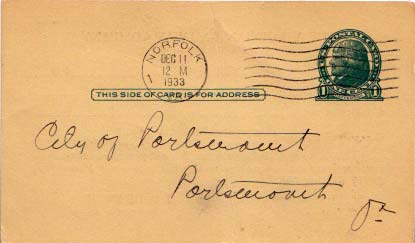 NORFOLK
DEC 11
12 M
1933
1
THIS SIDE OF CARD IS FOR ADDRESS
City of Portsmouth
Portsmouth
Va